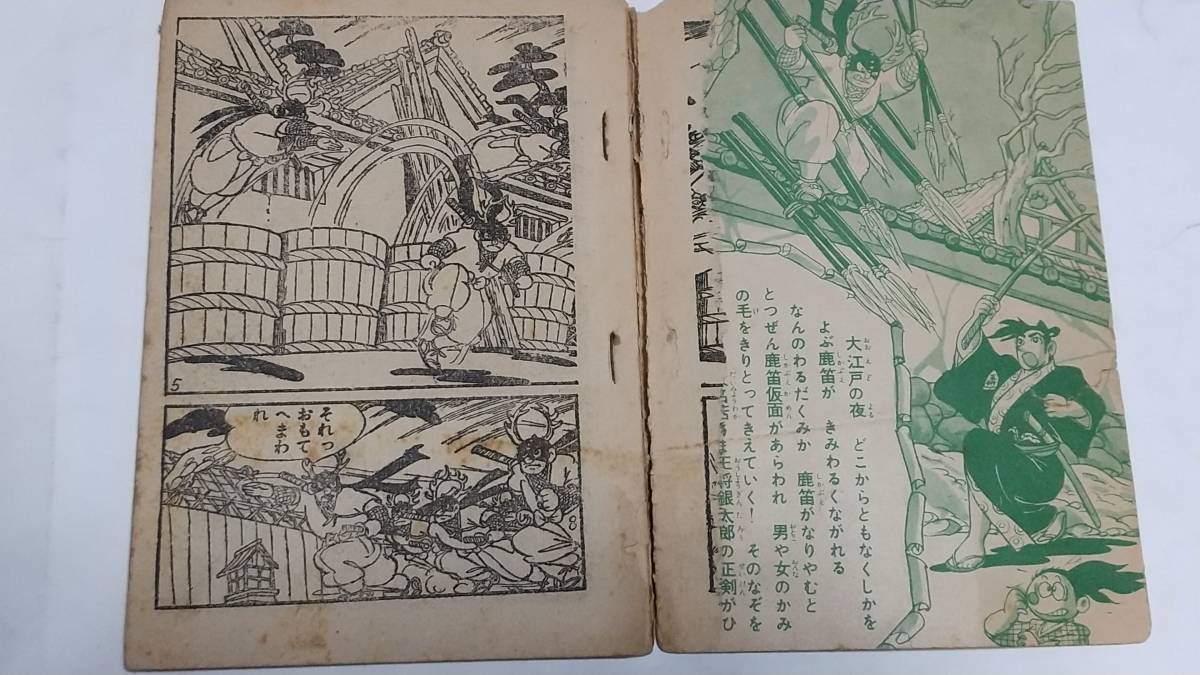 大江戸の夜　どこからともなくしかを
よぶ鹿笛が　きみわるくながれる
なんのわるだくみか　鹿笛がなりやむと
とつぜん鹿笛仮面があらわれ　男や女のかみ
の毛をきりとってきえていく！　そのなぞを
王将銀太郎の正剣がひ
それっ
おもて
へまわ
れ
5
8